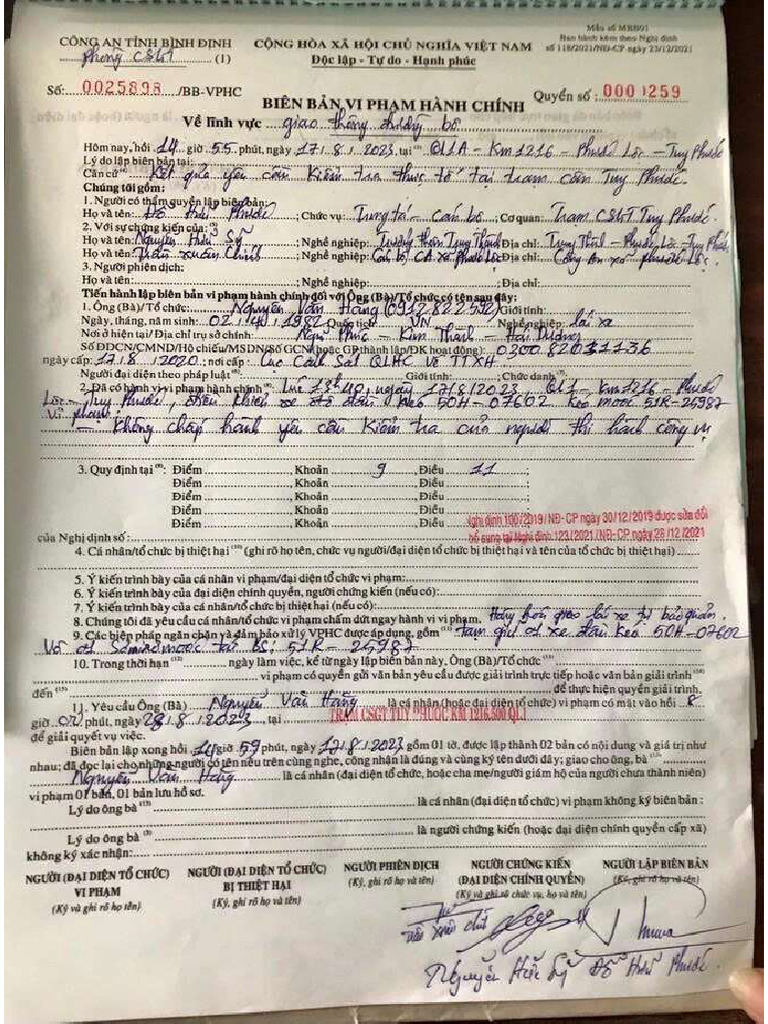 Mẫu số MBB01
Ban hành kèm theo Nghị định
số 118/2021/NĐ-CP ngày 23/12/2021
CÔNG AN TỈNH BÌNH ĐỊNH
Phòng CSGT (1)
CỘNG HÒA XÃ HỘI CHỦ NGHĨA VIỆT NAM
Độc lập - Tự do - Hạnh phúc
Số: 0025898 /BB-VPHC
Quyển số : 0000259
BIÊN BẢN VI PHẠM HÀNH CHÍNH
Về lĩnh vực giao thông đường bộ
Hôm nay, hồi 14 giờ 55 phút, ngày 17/8/2023, tại QL1A - Km1216 - Phước Lộc - Tuy Phước
Lý do lập biên bản tại:
Căn cứ Kết quả yêu cầu kiểm tra thực tế tại trạm cân Tuy Phước.
Chúng tôi gồm:
1. Người có thẩm quyền lập biên bản:
Họ và tên: Đỗ Hữu Phước ; Chức vụ: Trung tá - cán bộ ; Cơ quan: Trạm CSGT Tuy Phước.
2. Với sự chứng kiến của:
Họ và tên: Nguyễn Hữu Sỹ ; Nghề nghiệp: Trưởng thôn Trung Thành Địa chỉ: Trung Thành - Phước Lộc - Tuy Phước
Họ và tên: Trần Xuân Chính ; Nghề nghiệp: Cán bộ CA xã Phước Lộc Địa chỉ: Công An xã Phước Lộc.
3. Người phiên dịch:
Họ và tên: ; Nghề nghiệp: ; Địa chỉ:
Tiến hành lập biên bản vi phạm hành chính đối với Ông (Bà)/Tổ chức có tên sau đây:
1. Ông (Bà)/Tổ chức: Nguyễn Văn Hằng Giới tính:
Ngày, tháng, năm sinh: 02/4/1982 Quốc tịch: VN Nghề nghiệp: lái xe
Nơi ở hiện tại/Địa chỉ trụ sở chính: Ngũ Phúc - Kim Thành - Hải Dương
Số ĐDCN/CMND/Hộ chiếu/MSDN/Số GCN (hoặc GP thành lập/ĐK hoạt động):
ngày cấp: 17/8/2020; nơi cấp: Cục Cảnh Sát QLHC về TTXH
Người đại diện theo pháp luật: Giới tính: Chức danh:
2. Đã có hành vi vi phạm hành chính: Lúc 13h40, ngày 17/8/2023, QL1 - Km1216 - Phước
Lộc - Tuy Phước, điều khiển xe ô tô đầu kéo 50H-07602 kéo mooc 51R-25987
Vi phạm:
- Không chấp hành yêu cầu kiểm tra của người thi hành công vụ
3. Quy định tại: Điểm , Khoản 9 , Điều 11 ;
Điểm , Khoản , Điều ;
Điểm , Khoản , Điều ;
Điểm , Khoản , Điều ;
Điểm , Khoản , Điều
của Nghị định số: Nghị định 100/2019/NĐ-CP ngày 30/12/2019 được sửa đổi
bổ sung tại Nghị định 123/2021/NĐ-CP ngày 28/12/2021
4. Cá nhân/tổ chức bị thiệt hại (ghi rõ họ tên, chức vụ người/đại diện tổ chức bị thiệt hại và tên của tổ chức bị thiệt hại)
5. Ý kiến trình bày của cá nhân vi phạm/đại diện tổ chức vi phạm:
6. Ý kiến trình bày của đại diện chính quyền, người chứng kiến (nếu có):
7. Ý kiến trình bày của cá nhân/tổ chức bị thiệt hại (nếu có):
8. Chúng tôi đã yêu cầu cá nhân/tổ chức vi phạm chấm dứt ngay hành vi vi phạm. Hàng hóa giao lái xe tự bảo quản.
9. Các biện pháp ngăn chặn và đảm bảo xử lý VPHC được áp dụng, gồm tạm giữ 01 xe đầu kéo 50H-07602
Và 01 Sơmirơmooc tải BS: 51R-25987
10. Trong thời hạn ngày làm việc, kể từ ngày lập biên bản này, Ông (Bà)/Tổ chức
vi phạm có quyền gửi văn bản yêu cầu được giải trình trực tiếp hoặc văn bản giải trình
đến để thực hiện quyền giải trình.
11. Yêu cầu Ông (Bà) Nguyễn Văn Hằng là cá nhân (hoặc đại diện tổ chức) vi phạm có mặt vào hồi 8
giờ 00 phút, ngày 28/8/2023, tại TRẠM CSGT TUY PHƯỚC KM 1216.500 QL1
để giải quyết vụ việc.
Biên bản lập xong hồi 14 giờ 59 phút, ngày 17/8/2023 gồm 01 tờ, được lập thành 02 bản có nội dung và giá trị như
nhau; đã đọc lại cho những người có tên nêu trên cùng nghe, công nhận là đúng và cùng ký tên dưới đây; giao cho ông, bà
Nguyễn Văn Hằng là cá nhân (đại diện tổ chức, hoặc cha mẹ/người giám hộ của người chưa thành niên)
vi phạm 01 bản, 01 bản lưu hồ sơ.
Lý do ông bà là cá nhân (đại diện tổ chức) vi phạm không ký biên bản :
Lý do ông bà là người chứng kiến (hoặc đại diện chính quyền cấp xã)
không ký xác nhận:
NGƯỜI (ĐẠI DIỆN TỔ CHỨC) VI PHẠM
(Ký và ghi rõ họ và tên)
NGƯỜI (ĐẠI DIỆN TỔ CHỨC) BỊ THIỆT HẠI
(Ký, ghi rõ họ và tên)
NGƯỜI PHIÊN DỊCH
(Ký, ghi rõ họ và tên)
NGƯỜI CHỨNG KIẾN (ĐẠI DIỆN CHÍNH QUYỀN)
(Ký và ghi rõ chức vụ, họ và tên)
NGƯỜI LẬP BIÊN BẢN
(Ký, ghi rõ họ và tên)
Trần Xuân Chính
Nguyễn Hữu Sỹ Đỗ Hữu Phước